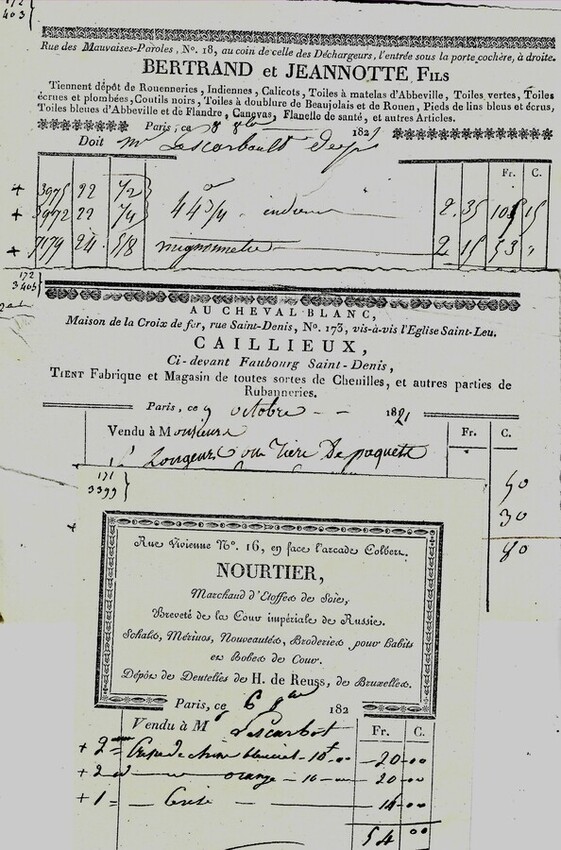 172
403
Rue des Mauvaises-Paroles, No. 18, au coin de celle des Déchargeurs, l'entrée sous la porte cochère, à droite.
BERTRAND et JEANNOTTE FILS
Tiennent dépôt de Rouenneries, Indiennes, Calicots, Toiles à matelas d'Abbeville, Toiles vertes, Toiles
écrues et plombées, Coutils noirs, Toiles à doublure de Beaujolais et de Rouen, Pieds de lins bleus et écrus,
Toiles bleues d'Abbeville et de Flandre, Canevas, Flanelle de santé, et autres Articles.
Paris, ce 8 8bre 1821
Doit Mr Lescarbault
Fr. C.
+ 3975 22 1/2
+ 3972 22 1/4 44 3/4 indienne 2.35 105 15
+ 7179 24 5/8 mignonnette 2 15 53 "
172
3403
AU CHEVAL BLANC,
Maison de la Croix de fer, rue Saint-Denis, No. 173, vis-à-vis l'Eglise Saint-Leu.
CAILLIEUX,
Ci-devant Faubourg Saint-Denis,
TIENT Fabrique et Magasin de toutes sortes de Chenilles, et autres parties de
Rubanneries.
Paris, ce 9 octobre 1821
Vendu à Monsieur Fr. C.
50
30
80
171
3399
Rue Vivienne No. 16, en face l'arcade Colbert.
NOURTIER,
Marchand d'Etoffes de Soie,
Breveté de la Cour impériale de Russie.
Schals, Mérinos, Nouveautés, Broderies pour Habits
et Robes de Cour.
Dépôt de Dentelles de H. de Reuss, de Bruxelles.
Paris, ce 6 8bre 182
Vendu à Mr Lescarbot Fr. C.
+ 2 = Crêpe de chine 10 20 00
+ 2 orange 10 20 00
+ 1 = 14 00
54 00